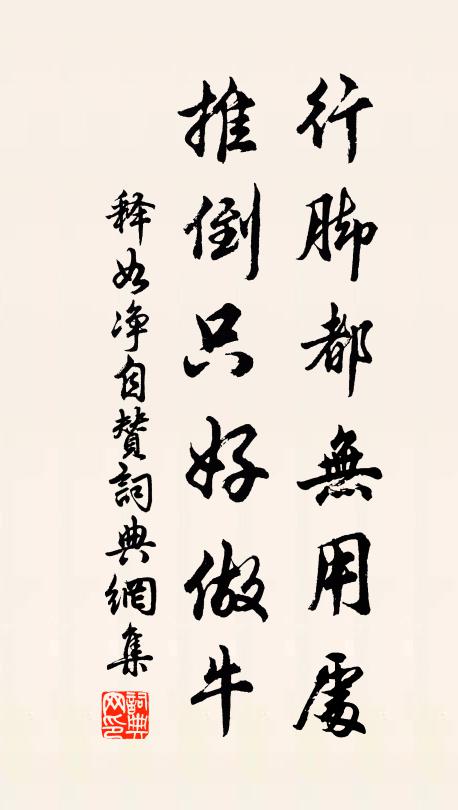 行脚都無用處
推倒只好做牛
释如净自赞詞典網集
詞典网印